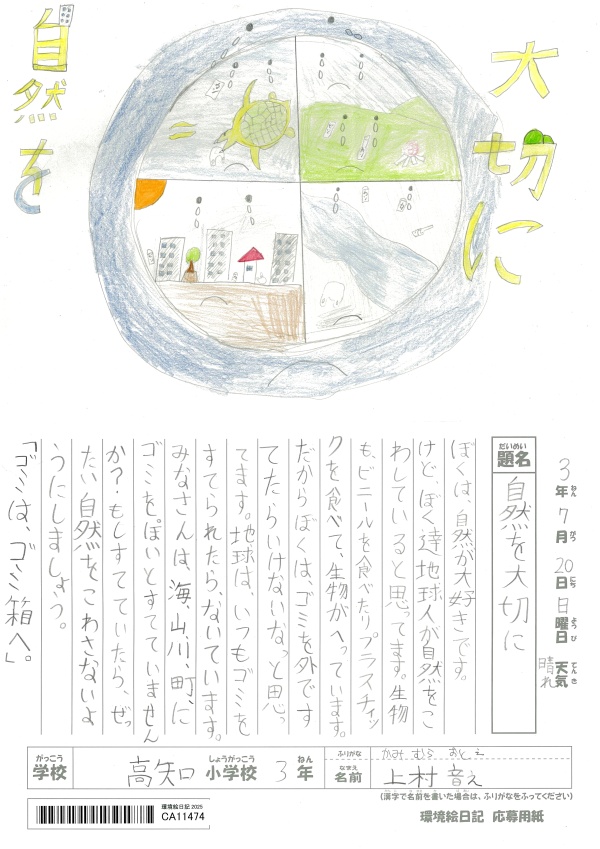 大切に
自然を
3年7月20日日曜日 天気晴れ
ねん がつ にち ようび てんき
だいめい
題名
自然を大切に
ぼくは、自然が大好きです。
けど、ぼく達地球人が自然をこ
わしていると思ってます。生物
も、ビニールを食べたりプラスチィッ
クを食べて、生物がへっています。
だからぼくは、ゴミを外です
てたらいけないなっと思っ
てます。地球は、いつもゴミを
すてられたら、ないています。
みなさんは、海、山、川、町、に
ゴミをぽいとすてていません
か?もしすてていたら、ぜっ
たい自然をこわさないよ
うにしましょう。
「ゴミは、ゴミ箱へ。」
がっこう しょうがっこう ねん
学校 高知小学校 3年
ふりがな かみ むら おと え
なまえ
名前 上村 音え
(漢字で名前を書いた場合は、ふりがなをふってください)
環境絵日記 2025
CA11474
環境絵日記 応募用紙